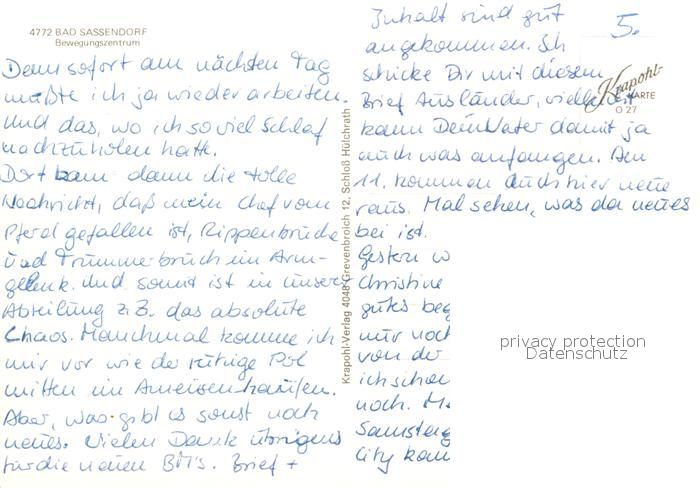 4772 BAD SASSENDORF
Bewegungszentrum
Denn sofort am nächsten Tag
mußte ich ja wieder arbeiten.
Und das, wo ich so viel Schlaf
nachzuholen hatte.
Dort kam dann die tolle
Nachricht, daß mein Chef vom
Pferd gefallen ist, Rippenbrüche
und Trümmerbruch im Arm-
gelenk. Und somit ist in unserer
Abteilung z.Z. das absolute
Chaos. Manchmal komme ich
mir vor wie der ruhige Pol
mitten im Ameisenhaufen.
Aber, was gibt es sonst noch
neues. Vielen Dank übrigens
für die neuen BM's. Brief +
Krapohl-Verlag 4048 Grevenbroich 12, Schloß Hülchrath
5.
Inhalt sind gut
angekommen. Ich
schicke Dir mit diesem
Brief Ausländer, vielleicht
kann Dein Vater damit ja
auch was anfangen. Am
11. kommen auch hier neue
raus. Mal sehen, was da neues
bei ist.
Gestern w
Christine
gutes beg
nur noch
von der
ich schon
noch. M
Samstag
City kam
Krapohl-
KARTE
O 27
privacy protection
Datenschutz